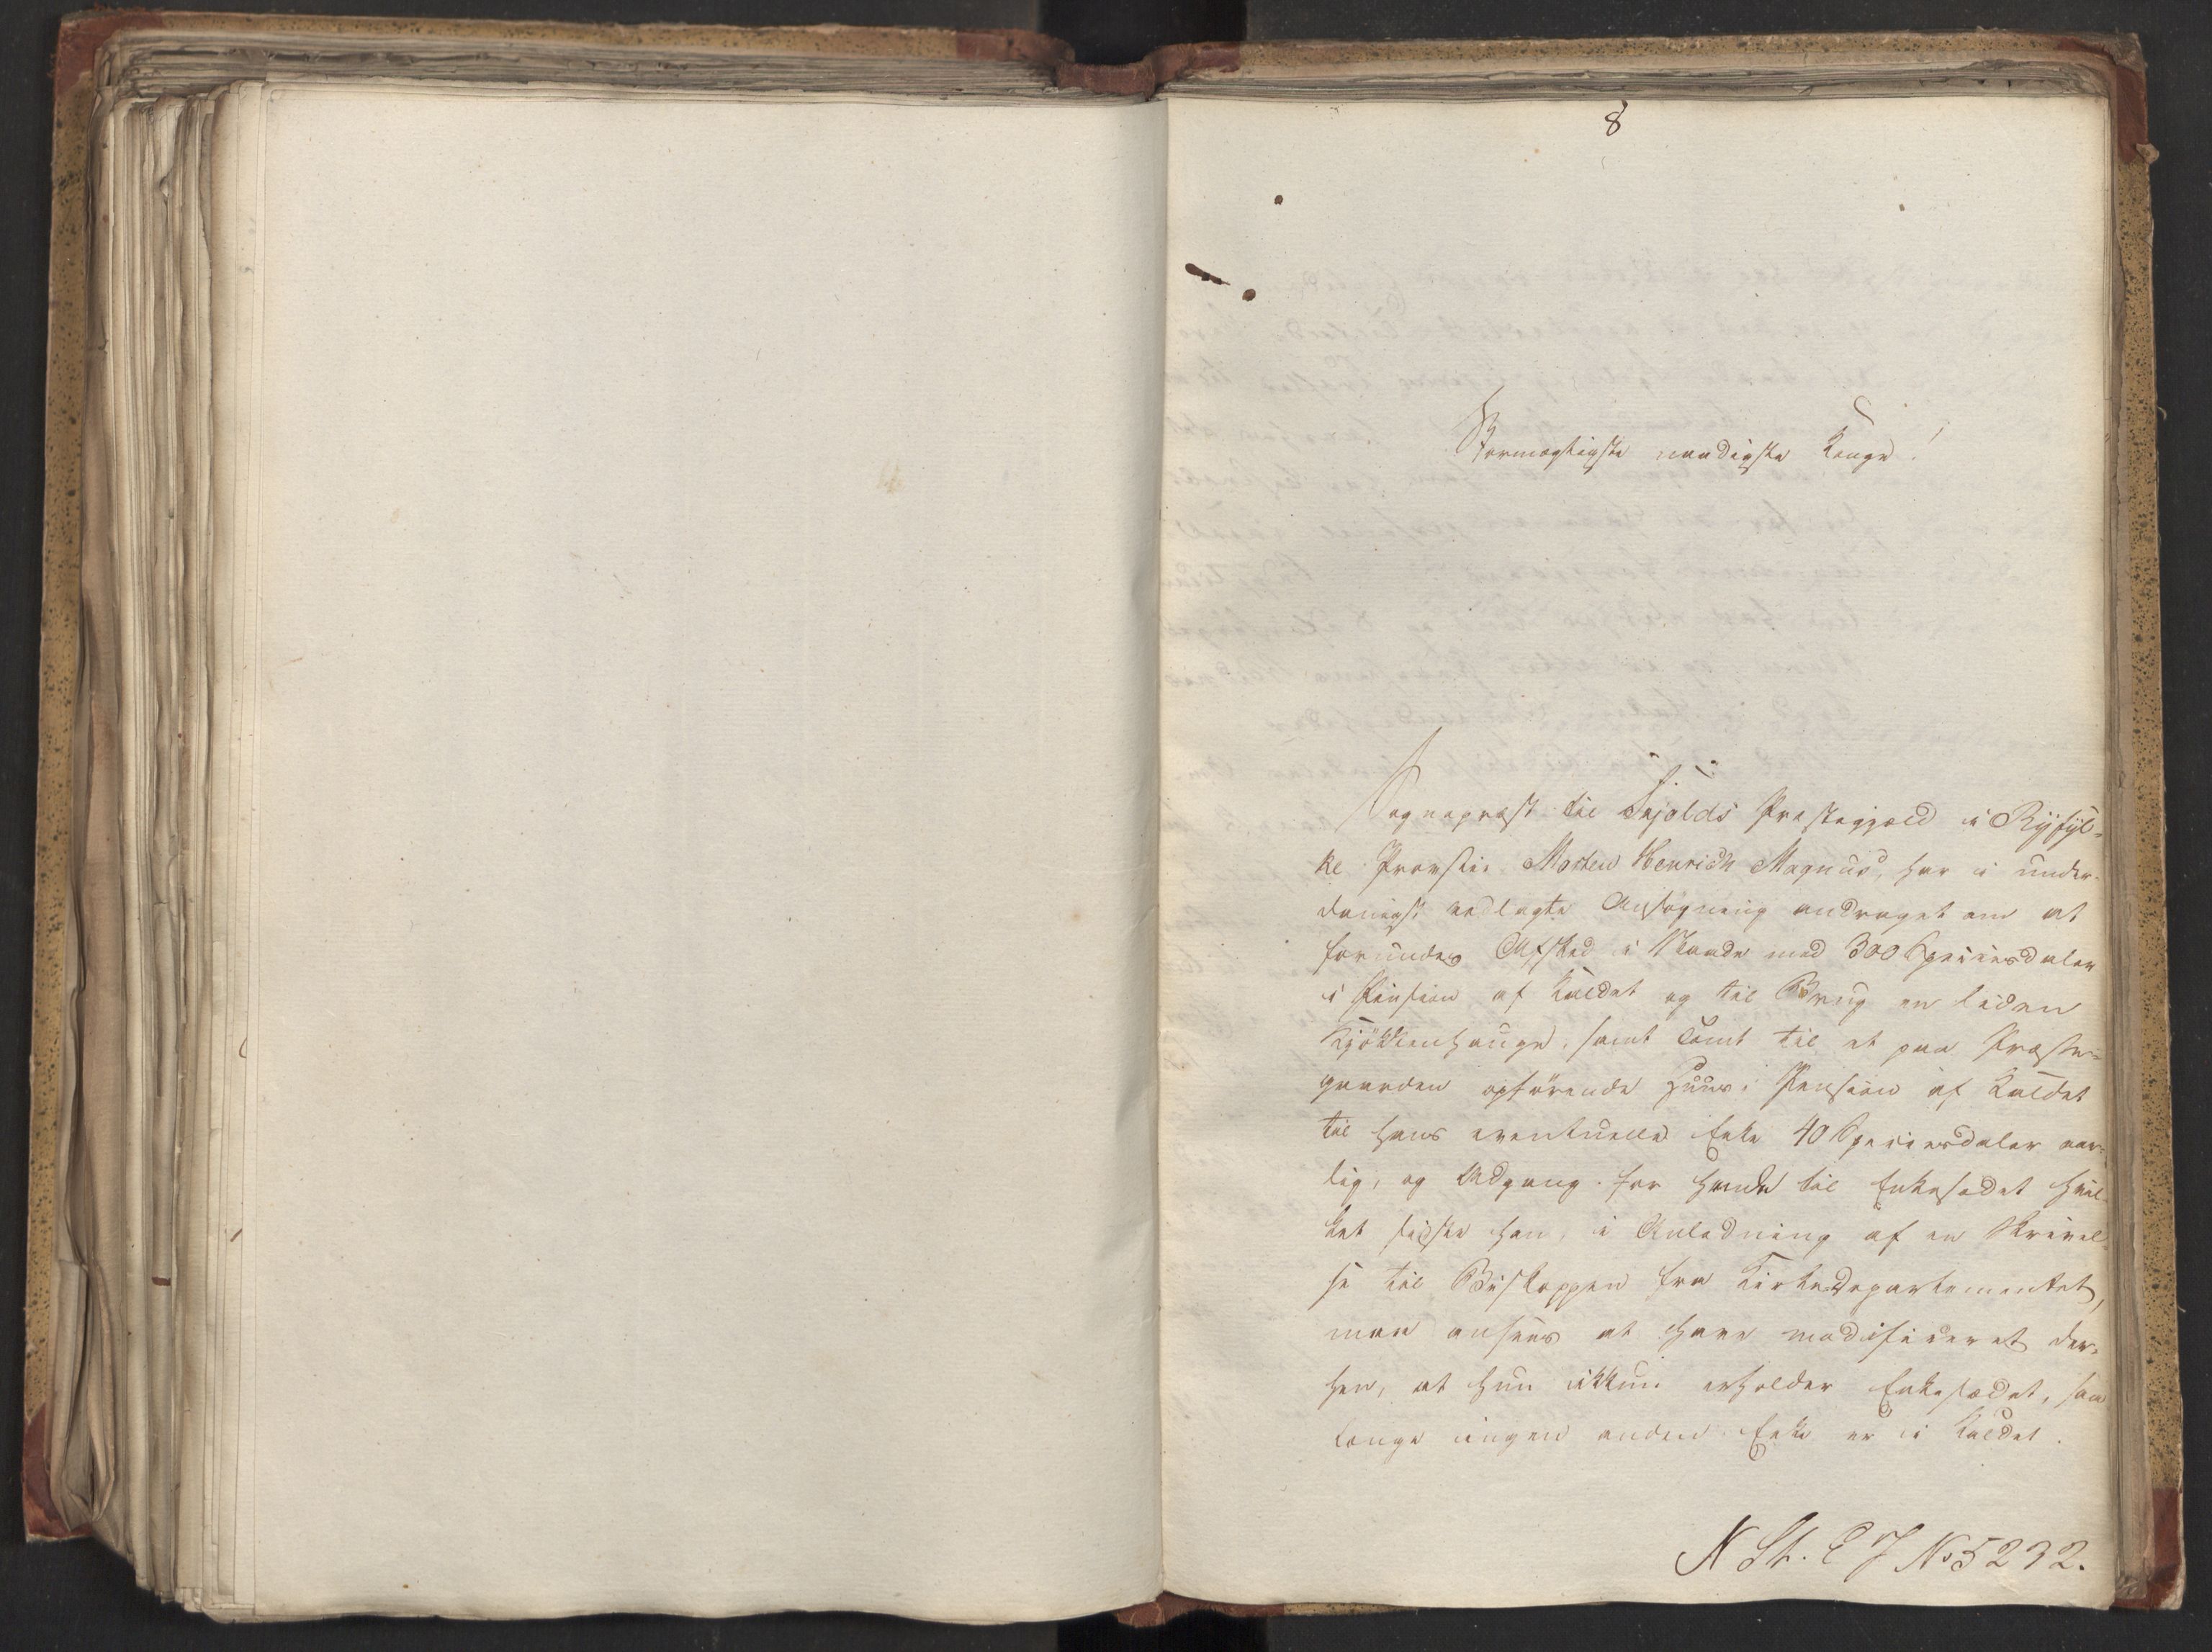 8
Stormægtigste naadigste Konge!
Sognepræst til Skjolds Præstegjæld i Ryfyl-
ke Provstie Morten Henrich Magnus, har i under-
danigst vedlagte Ansøgning andraget om at
forundes Afsked i Naade med 300 Speciesdaler
i Pension af Kaldet og til Brug en liden
Kjøkkenhauge, samt Tomt til et paa Præste-
gaarden opførende Huus, i Pension af Kaldet
til hans eventuelle Enke 40 Speciesdaler aar-
lig, og Adgang for hende til Enkesædet hvil-
ket sidste han, i Anledning af en Skrivel-
se til Biskoppen fra Kirkedepartementet,
maa ansees at have modificeret der-
hen, at hun ikkun erholder Enkesædet, saa
længe ingen anden Enke er i Kaldet.
N St. E J No 5232.